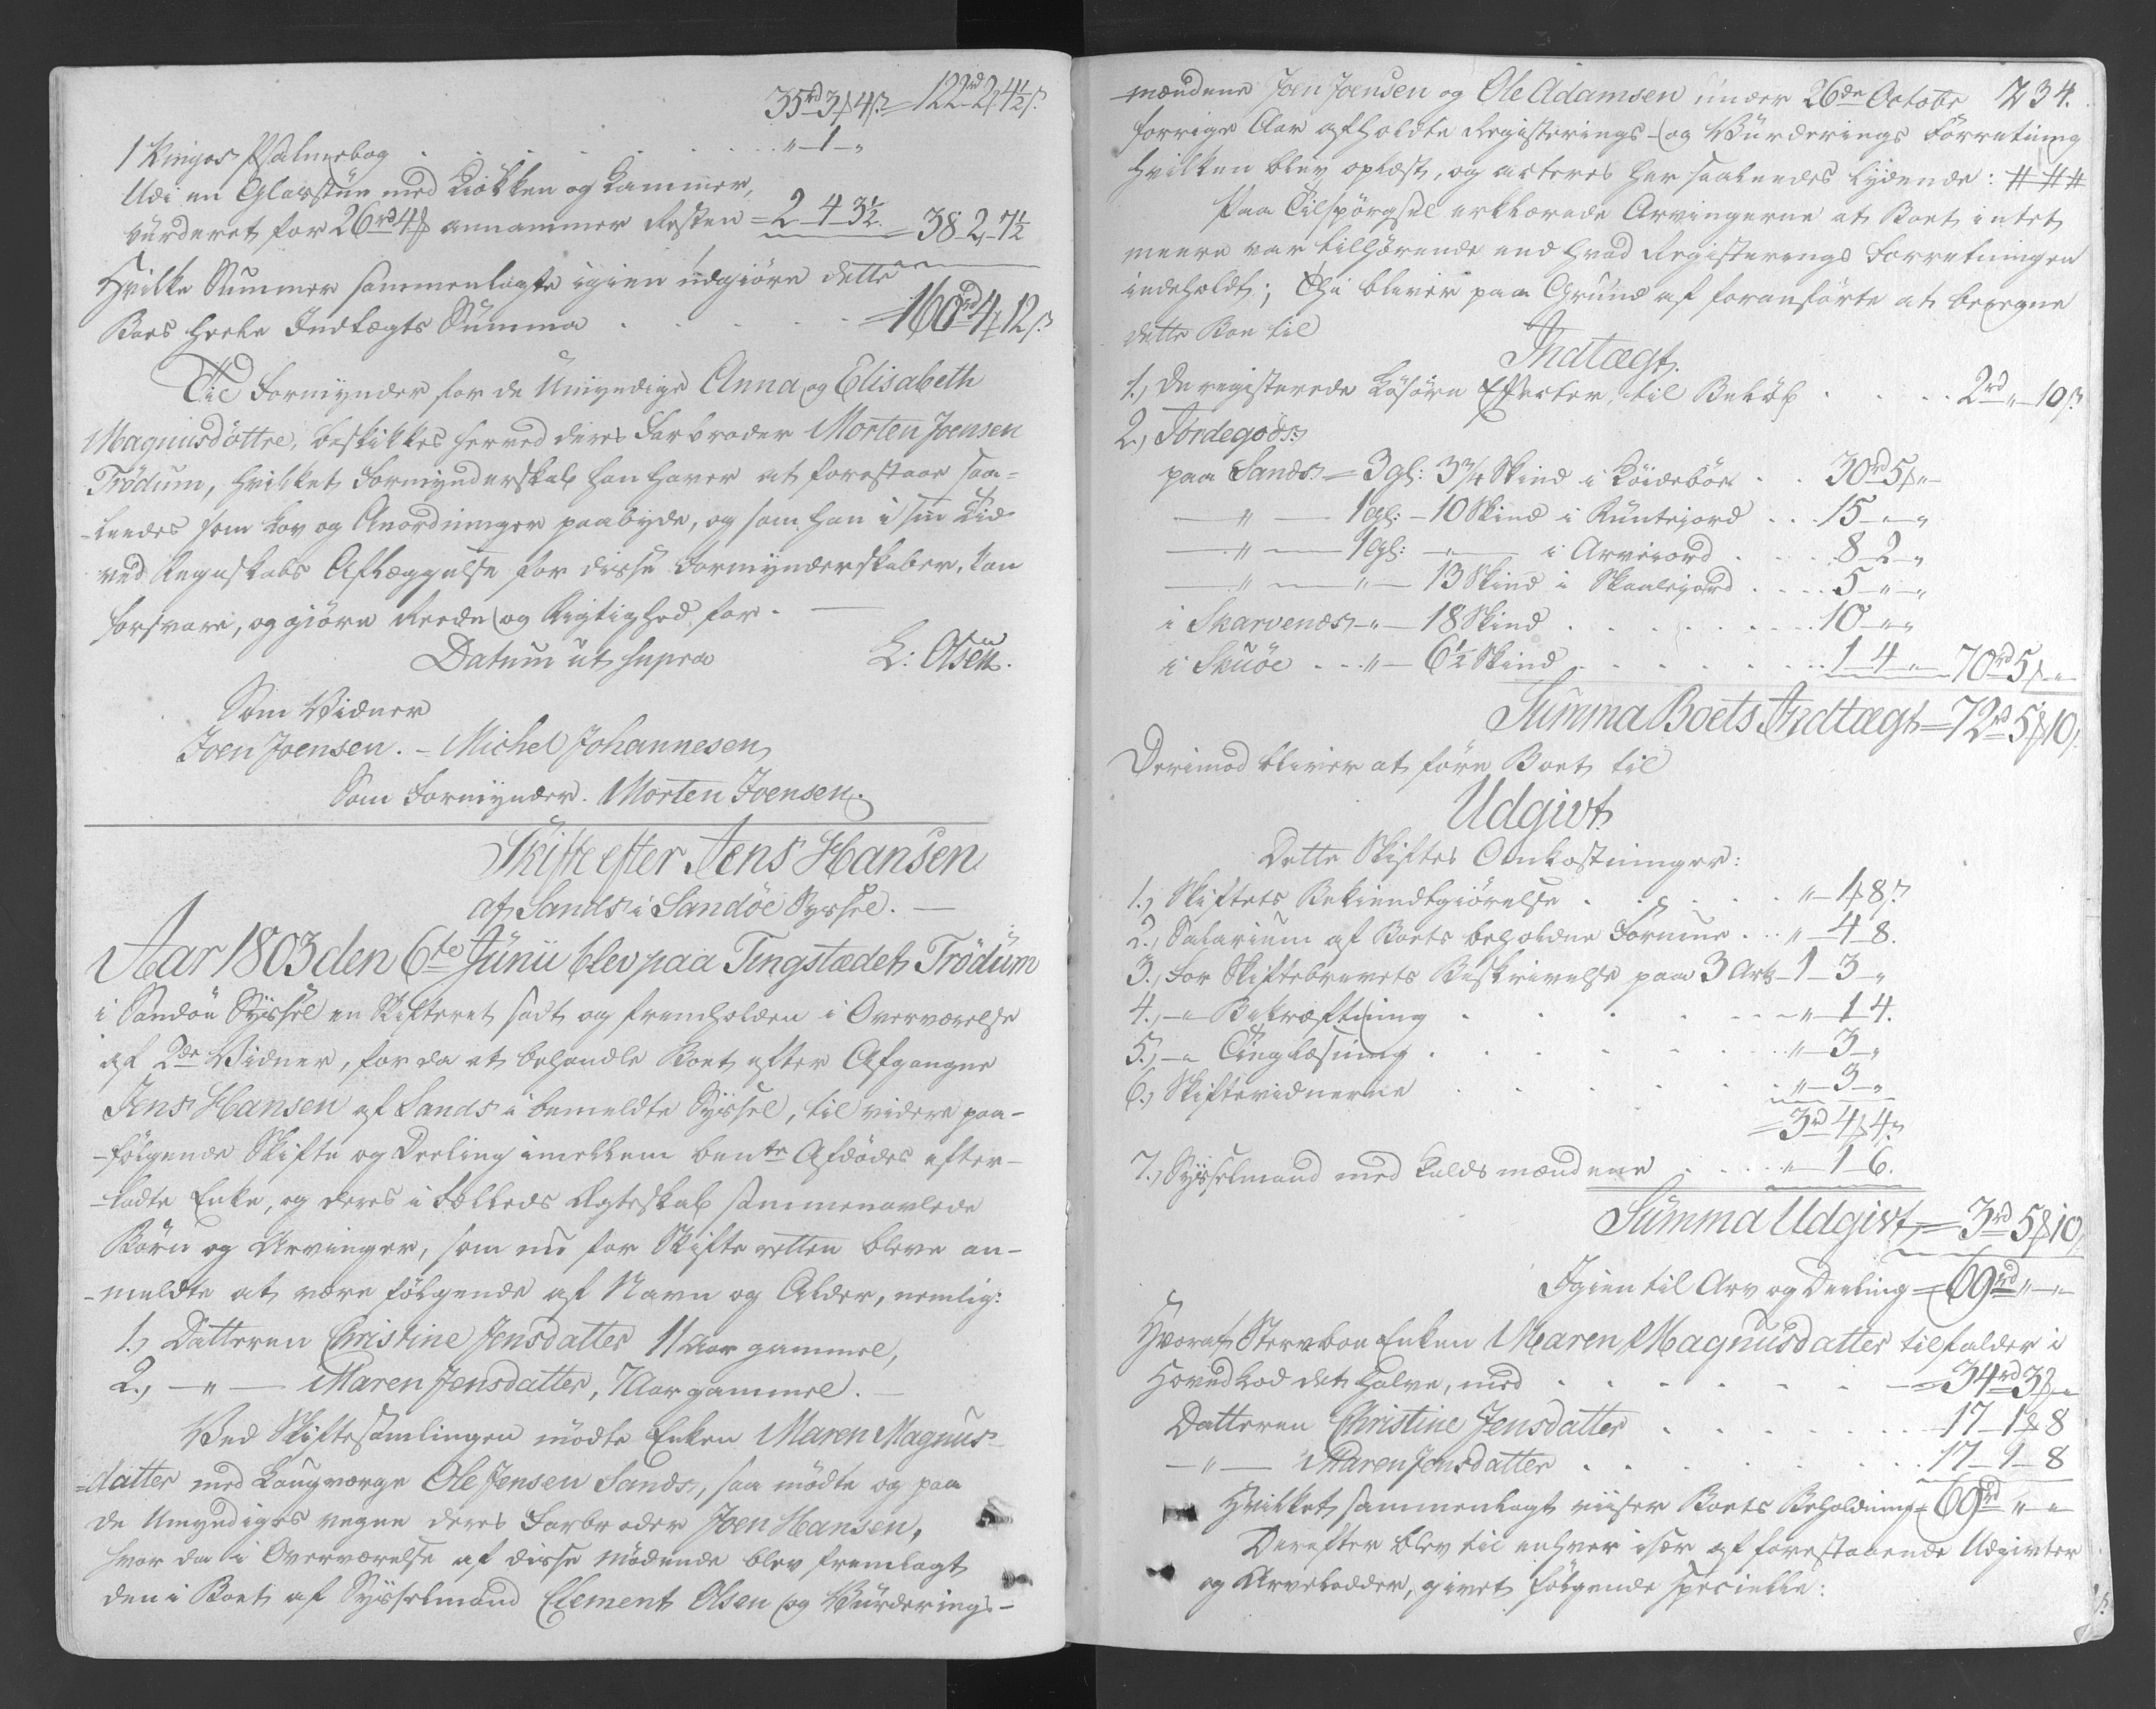 35rd 3ƒ 4ß = 122rd 2ƒ 4½ß.
1 Kingos Psalmebog . . . . . . . „ - 1 - „
Udi en Glasstue med Kiökken og Kammer,
vurderet for 26rd 4ƒ annammer Resten = 2 - 4 - 3½. = 38 - 2 - 7½
Hvilke Summer sammenlagte igien udgiöre dette
Boes heele Indtægts Summa . . . . . = 160rd 4ƒ 12ß.
Til Formynder for de Umyndige Anna og Elisabeth
Magnusdöttre, beskikkes herved deres Farbroder Morten Joensen
Trödum, hvilket Formynderskab han haver at forestaae saa-
-leedes som Lov og Anordninger paabyde, og som han i sin Tid
ved Regnskabs Aflæggelse for disse Formynderskaber, kan
forsvare, og giöre Reede og Rigtighed for. —
Datum ut supra L: Olsen.
Som Vidner
Joen Joensen. - Michel Johannesen
Som Formynder. Morten Joensen.
Skifte efter Jens Hansen
af Sands i Sandöe Syssel. —
Aar 1803 den 6te Junii blev paa Tingstædet Trödum
i Sandöe Syssel en Skifteret sadt og fremholden i Overværelse
af 2de Vidner, for da at behandle Boet efter Afgangne
Jens Hansen af Sands i bemeldte Syssel, til videre paa-
-fölgende Skifte og Deeling imellem bem.te Afdödes efter-
-ladte Enke, og deres i Fælleds Ægteskab sammenavlede
Börn og Arvinger, som nu for Skifte retten bleve an-
-meldte at være fölgende af Navn og Alder, nemlig:
1.) Datteren Christine Jensdatter 11 Aar gammel,
2.) — „ — Maren Jensdatter, 7 Aar gammel. —
Ved Skiftesamlingen mödte Enken Maren Magnus-
=datter med Laugværge Ole Jensen Sands, saa mödte og paa
de Umyndiges vegne deres Farbroder Joen Hansen,
hvor da i Overværelse af disse mödende blev fremlagt
den i Boet af Sysselmand Clement Olsen og Vurderings-
-mændene Joen Joensen og Ole Adamsen under 26de Octobr 234.
forrige Aar afholdte Registerings- og Vurderings Forretning
hvilken blev oplæst, og acteres her saaleedes lydende: # # #
Paa Tilspörgsel erklærede Arvingerne at Boet intet
meere var tilhörende end hvad Registerings Forretningen
indeholdt; Thi bliver paa Grund af foranförte at beregne
dette Boe til
Indtægt.
1.) De registerede Lösöre Effecter, til Belöb . . . . 2rd „ 10ß
2.) Jordegods:
paa Sands = 3 gl: 3¾ Skind i Löideböe . . 30rd 5ƒ „
— „ — 1 gl: - 10 Skind i Runtejord . . . 15 - „ - „
— „ — 1 gl: — „ — i Arvejord . . . 8 - 2 - „
— „ — „ — 13 Skind i Skaalejord . . . . 5 - „ - „
i Skarvenæs - „ — 18 Skind . . . . . . . 10 - „ „
i Skuöe . . . „ — 6½ Skind . . . . . . . 1 - 4 - „ — 70rd 5ƒ „
Summa Boets Indtægt = 72rd 5ƒ 10ß.
Derimod bliver at före Boet til
Udgivt
Dette Skiftes Omkostninger:
1.) Skiftets Bekiendtgiörelse . . . . . . „ - 1ƒ 8ß
2.) Salarium af Boets beholdne Formue . . „ - 4 - 8.
3.) For Skiftebrevets Beskrivelse paa 3 Ark - 1 - 3 - „
4.) - „ Bekræftning . . . . . - „ - 1 - 4.
5.) - „ Tinglæsning . . . . . . „ - 3 - „
6.) Skiftevidnerne . . . . . . „ - 3 - „
= 3rd 4ƒ 4ß
7.) Sysselmand med Lauds mændene . . . . „ - 1 - 6.
Summa Udgivt = 3rd 5ƒ 10ß
Igien til Arv og Deeling = 69rd „ - „
Hvoraf Stervboe Enken Maren Magnusdatter tilfalder i
Hovedlod det halve, med . . . . . . . = 34rd 3ƒ „
Datteren Christine Jensdatter . . . . . . . 17 - 1ƒ 8
— „ — Maren Jensdatter . . . . . . . 17 - 1 - 8
Hvilket sammenlagt viiser Boets Beholdning = 69rd „ „
Derefter blev til enhver især af forestaaende Udgivter
og Arvelodder, givet fölgende specielle: